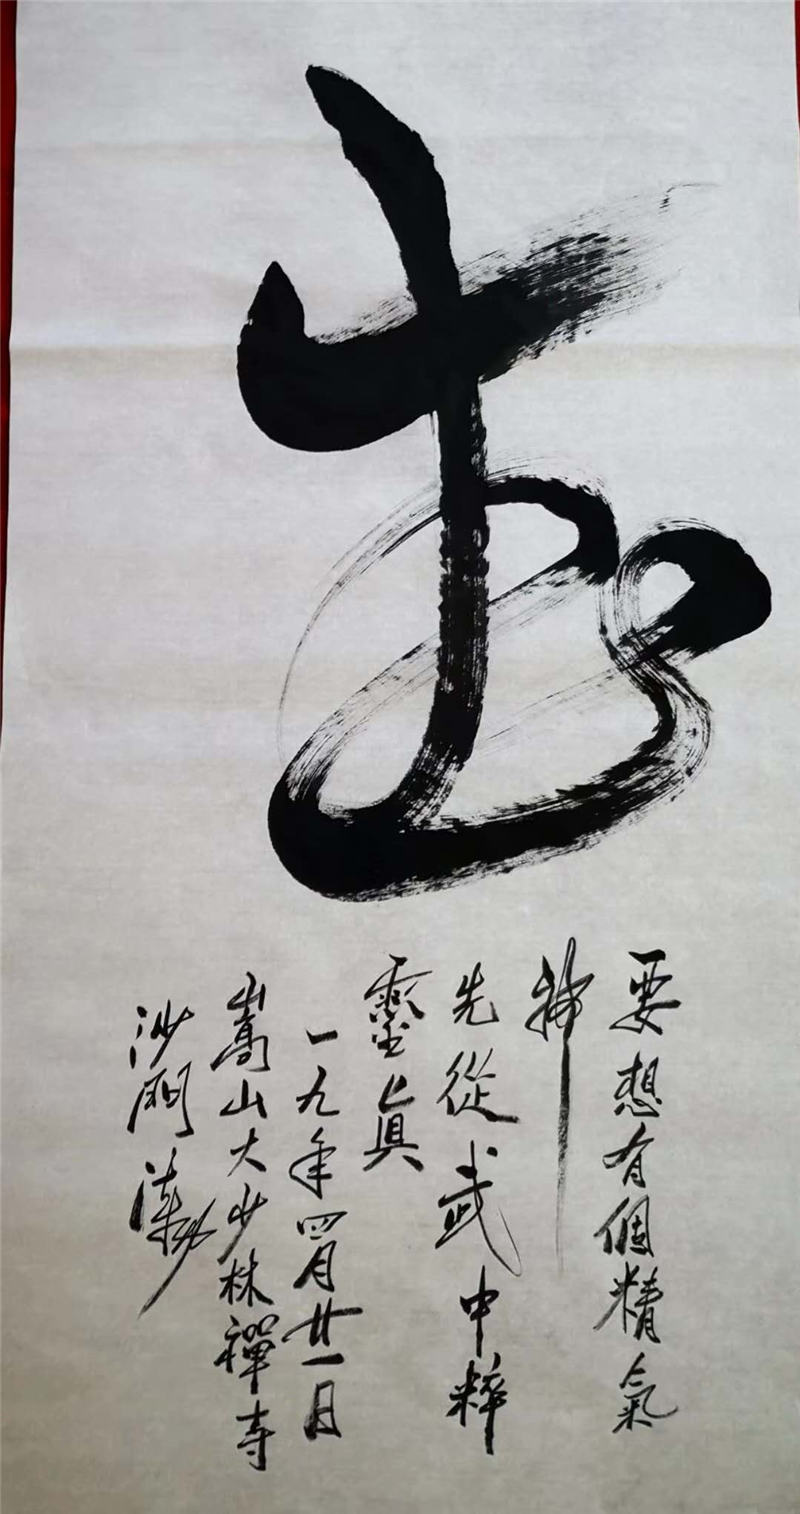 要想有個精氣
神
先從武中粹
靈真
一九年四月廿一日
嵩山大少林禪寺
沙門